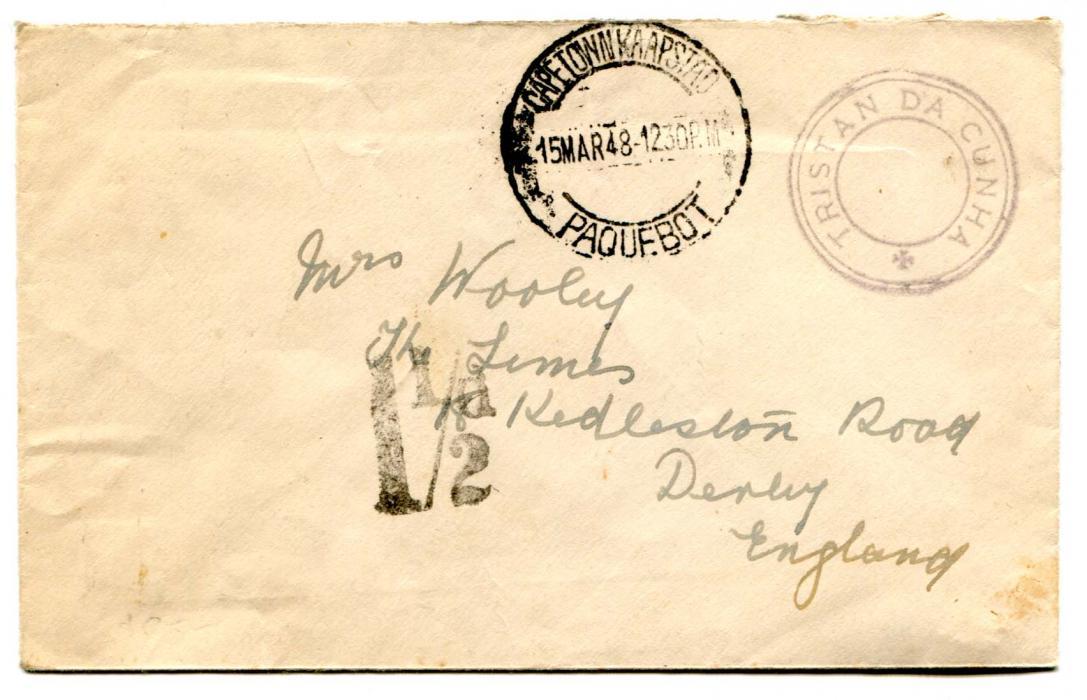 CAPETOWN KAAPSTAD
15MAR48-1230P.M
PAQUEBOT
TRISTAN DA CUNHA
Mrs Wooley
The Limes
Kedleston Road
Derby
England
1 1/2 d